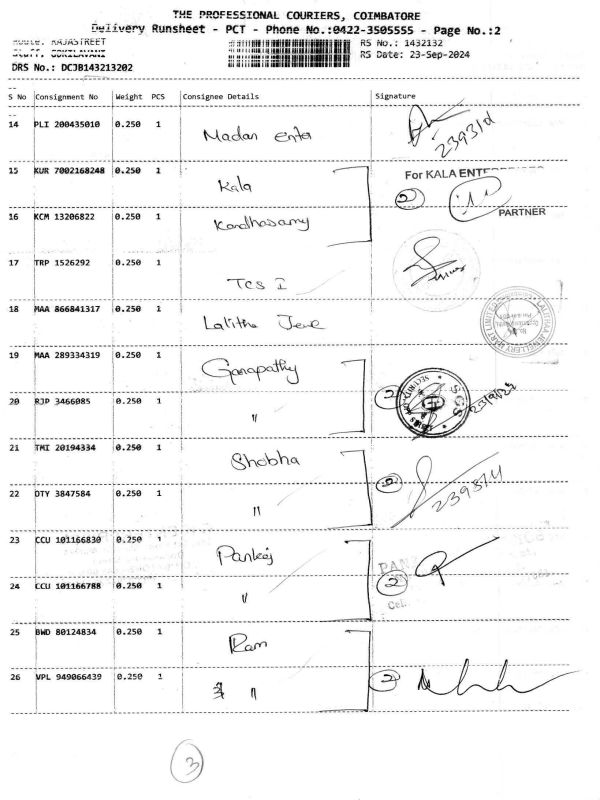 THE PROFESSIONAL COURIERS, COIMBATORE
Delivery Runsheet - PCT - Phone No.:0422-3505555 - Page No.:2
Route: RAJASTREET
RS No.: 1432132
RS Date: 23-Sep-2024
DRS No.: DCJB143213202
S No Consignment No Weight PCS Consignee Details Signature
14 PLI 200435010 0.250 1 Madan
15 KUR 7002168248 0.250 1 Kala 2 For KALA ENTERPRISES
PARTNER
16 KCM 13206822 0.250 1 Kandhasamy
17 TRP 1526292 0.250 1 TCS I
18 MAA 866841317 0.250 1 Lalitha Jewl
19 MAA 289334319 0.250 1 Ganapathy
20 RJP 3466085 0.250 1 " 2 SGS SECURITY
21 TMI 20194334 0.250 1 Shobha
22 DTY 3847584 0.250 1 " 2
23 CCU 101166830 0.250 1 Pankaj
24 CCU 101166788 0.250 1 " 2
Cell
25 BWD 80124834 0.250 1 Ram
26 VPL 949066439 0.250 1 " 2
3